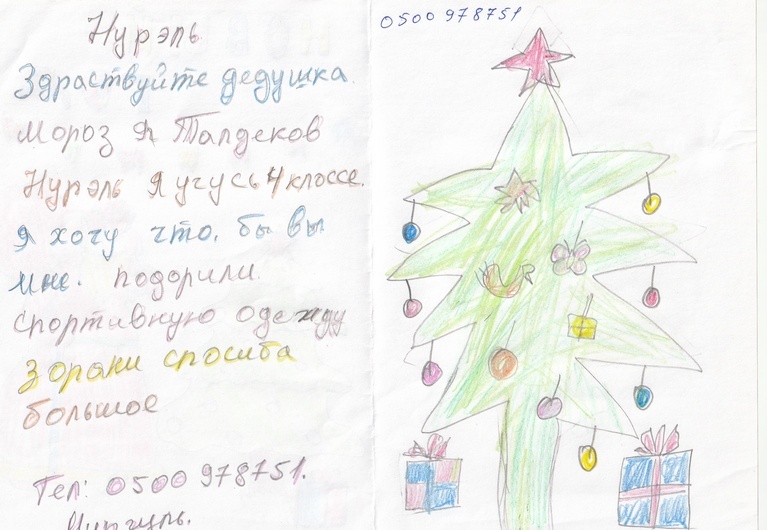 Нурэль
Здраствуйте дедушка.
Мороз Я Талдеков
Нурэль Я угусь 4 клоссе.
Я хочу что. бы вы
мне. подорили
спортивную одежду
Зорани спосиба
большое
Тел: 0500 978751.
0500 978751